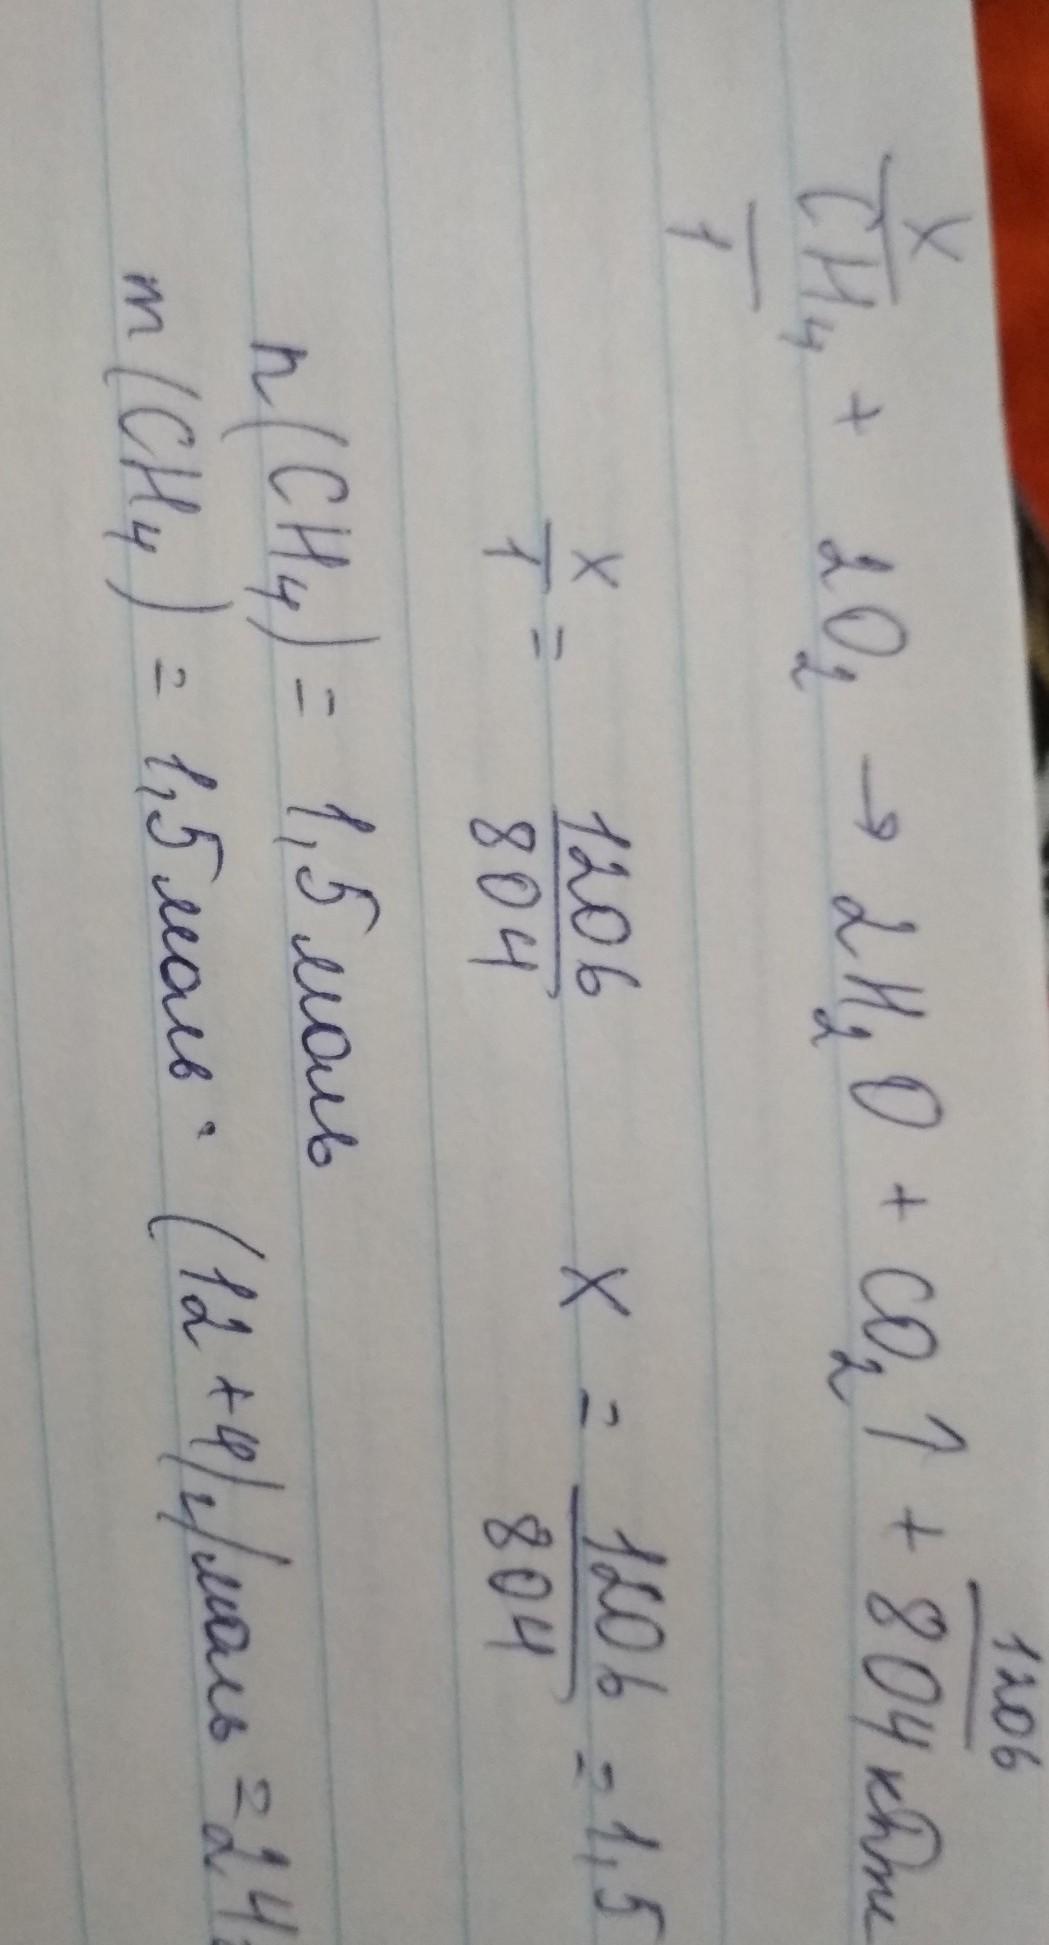 x 1206
CH₄ + 2O₂ → 2H₂O + CO₂↑ + 804 кДж
1
x/1 = 1206/804 x = 1206/804 = 1,5
n(CH₄) = 1,5 моль
m(CH₄) = 1,5 моль · (12+4) г/моль = 24